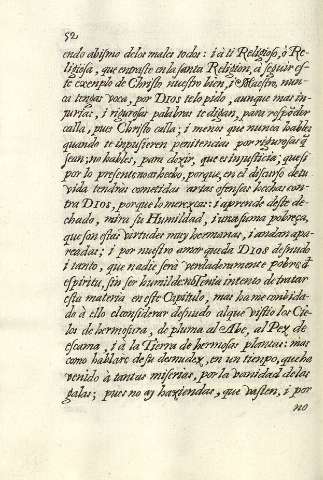 52
endo abismo de los males todos: i à ti Religioso, ò Re-
ligiosa, que entraste en la santa Religion, à seguir es-
te exemplo de Christo nuestro bien, i Maestro, nun-
ca tengas voca, por Dios te lo pido, aunque mas in-
jurias, i rigurosas palabras te digan, para respõder
calla, pues Christo calla; i menos que nunca hables
quando te impusieren penitencias por rigurosas q̃
sean; no hables, para dezir, que es injusticia; que si
por lo presente no as hecho, porque, en el discurso de tu
vida tendràs cometidas artas ofensas hechas con-
tra Dios, porque lo merezcas: i aprende deste de-
chado, mira su Humildad, i una suma pobreça,
que son estas virtudes muy hermanas, i andan apa-
readas; i por nuestro amor queda Dios desnudo
i tanto, que nadie serà verdaderamente pobre ð
espiritu, sin ser humilde. No fue mi intento de tratar
esta materia en este Capitulo, mas ha me conbida-
do à ello el considerar desnudo al que vistio los Cie-
los de hermosura, de pluma al Abe, al Pex de
escama, i à la Tierra de hermosas plantas: mas
como hablarè de su desnudez, en un tiempo, que ha
venido à tantas miserias, por la vanidad de las
galas; pues no ay haziendas, que vasten, i por
no